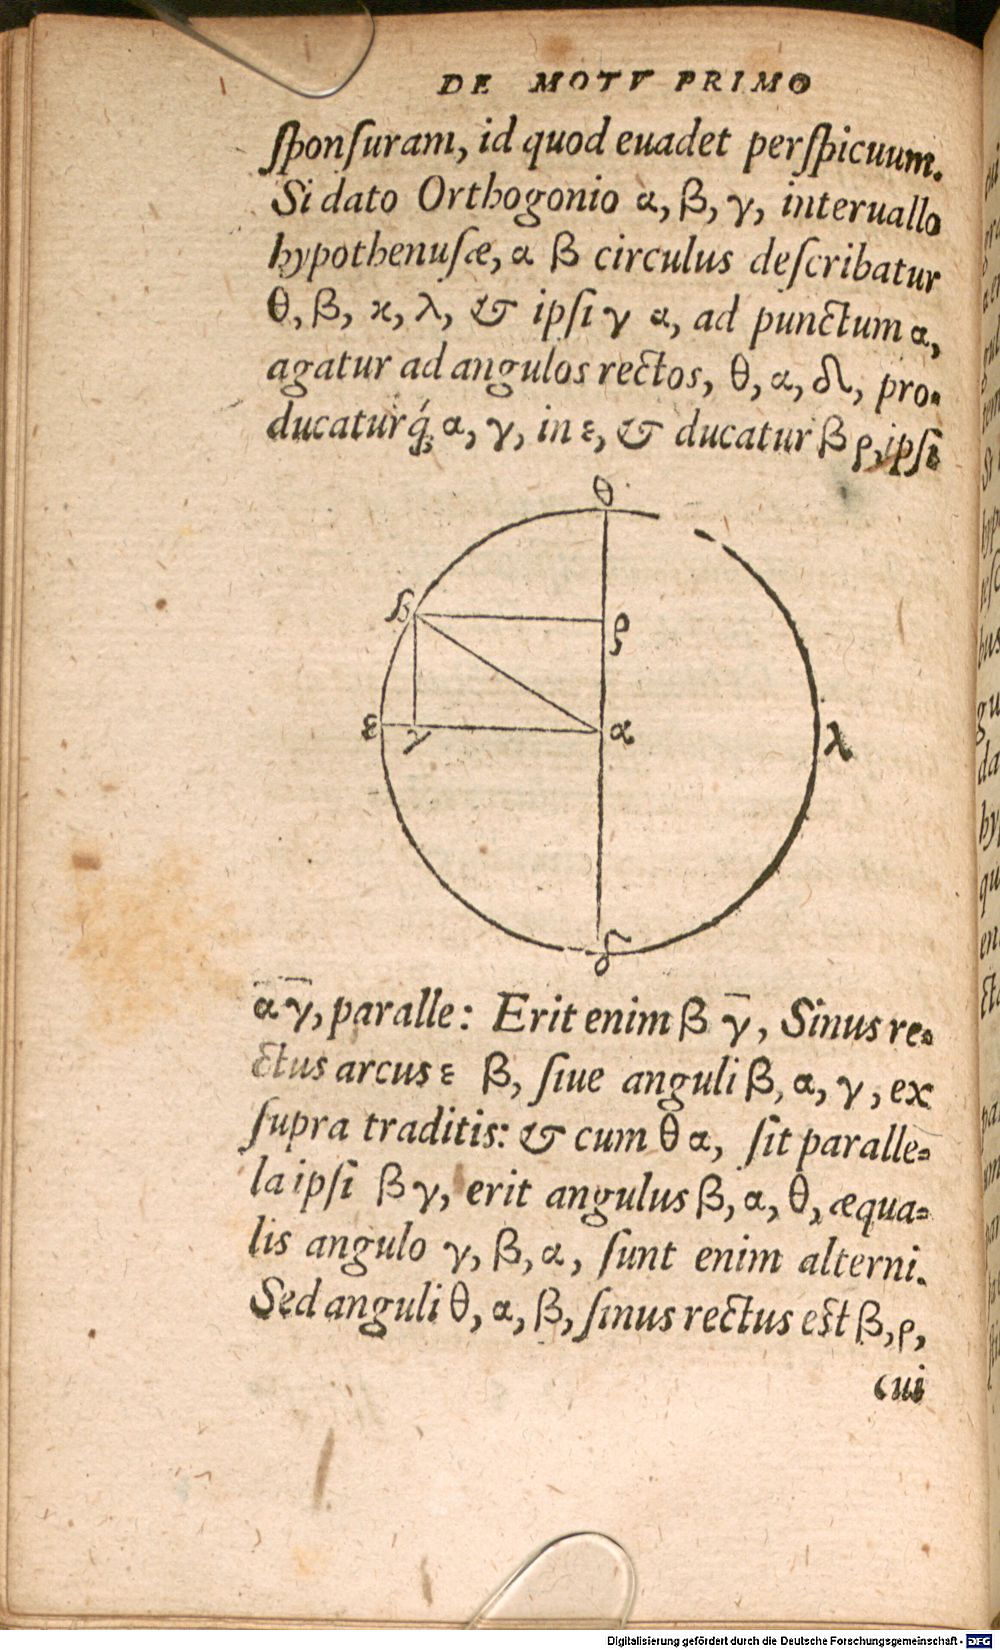 DE MOTV PRIMO
ſponſuram, id quod euadet perſpicuum.
Si dato Orthogonio α, β, γ, interuallo
hypothenuſæ, α β circulus deſcribatur
θ, β, κ, λ, & ipſi γ α, ad punctum α,
agatur ad angulos rectos, θ, α, δ, pro-
ducaturq́; α, γ, in ε, & ducatur β ρ, ipſi
θ
β
ρ
ε
γ
α
λ
δ
α̅ γ̅, paralle: Erit enim β γ̅, Sinus re-
ctus arcus ε β, ſiue anguli β, α, γ, ex
ſupra traditis: & cum θ α, ſit paralle-
la ipſi β γ, erit angulus β, α, θ, æqua-
lis angulo γ, β, α, ſunt enim alterni.
Sed anguli θ, α, β, ſinus rectus eſt β, ρ,
cui
Digitalisierung gefördert durch die Deutsche Forschungsgemeinschaft - DFG